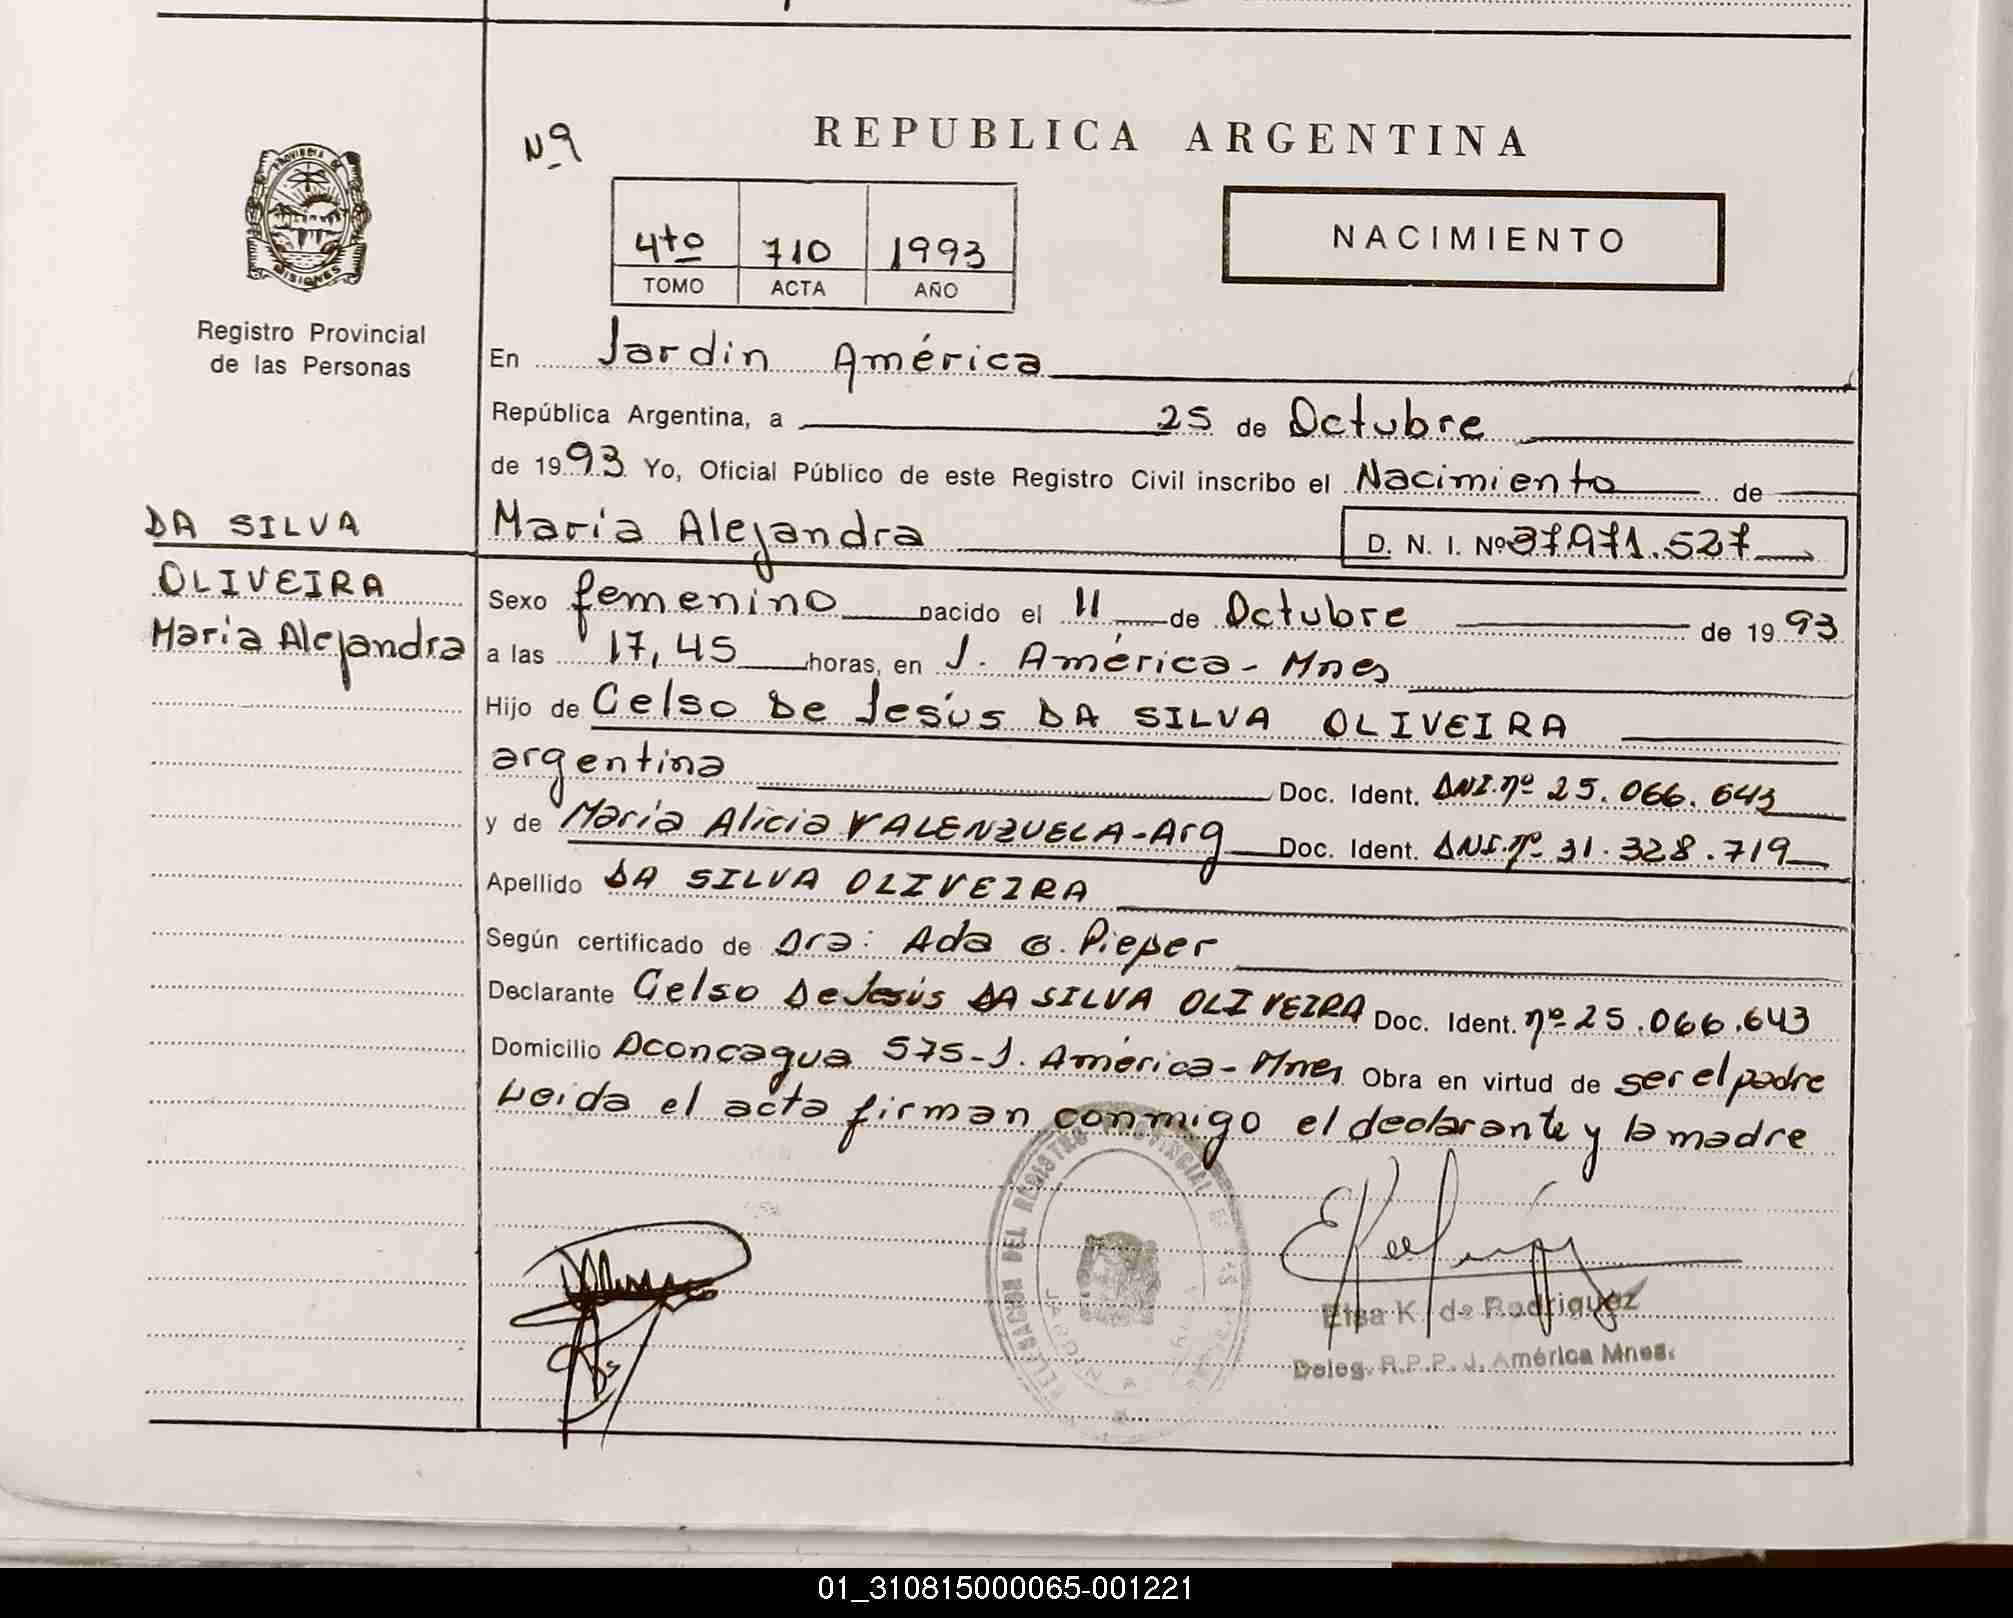 Nº
REPUBLICA ARGENTINA
PROVINCIA DE
MISIONES
4to 710 1993
TOMO ACTA AÑO
NACIMIENTO
Registro Provincial
de las Personas
En Jardin América
República Argentina, a 25 de Octubre
de 1993 Yo, Oficial Público de este Registro Civil inscribo el Nacimiento de
DA SILVA
OLIVEIRA
Maria Alejandra
Maria Alejandra D. N. I. Nº 37.971.527
Sexo femenino nacido el 11 de Octubre de 1993
a las 17,45 horas, en J. América - Mnes
Hijo de Celso De Jesús DA SILVA OLIVEIRA
argentina Doc. Ident. DNI. nº 25.066.643
y de Maria Alicia VALENZUELA - Arg Doc. Ident. DNI. nº 31.328.719
Apellido DA SILVA OLIVEIRA
Según certificado de Dra: Ada G. Pieper
Declarante Celso De Jesús DA SILVA OLIVEIRA Doc. Ident. nº 25.066.643
Domicilio Aconcagua 575 - J. América - Mnes Obra en virtud de ser el padre
Leida el acta firman conmigo el declarante y la madre
DELEGACION DEL REGISTRO PROVINCIAL
Elsa K. de Rodriguez
Deleg. R.P.P. J. América Mnes.
01_310815000065-001221